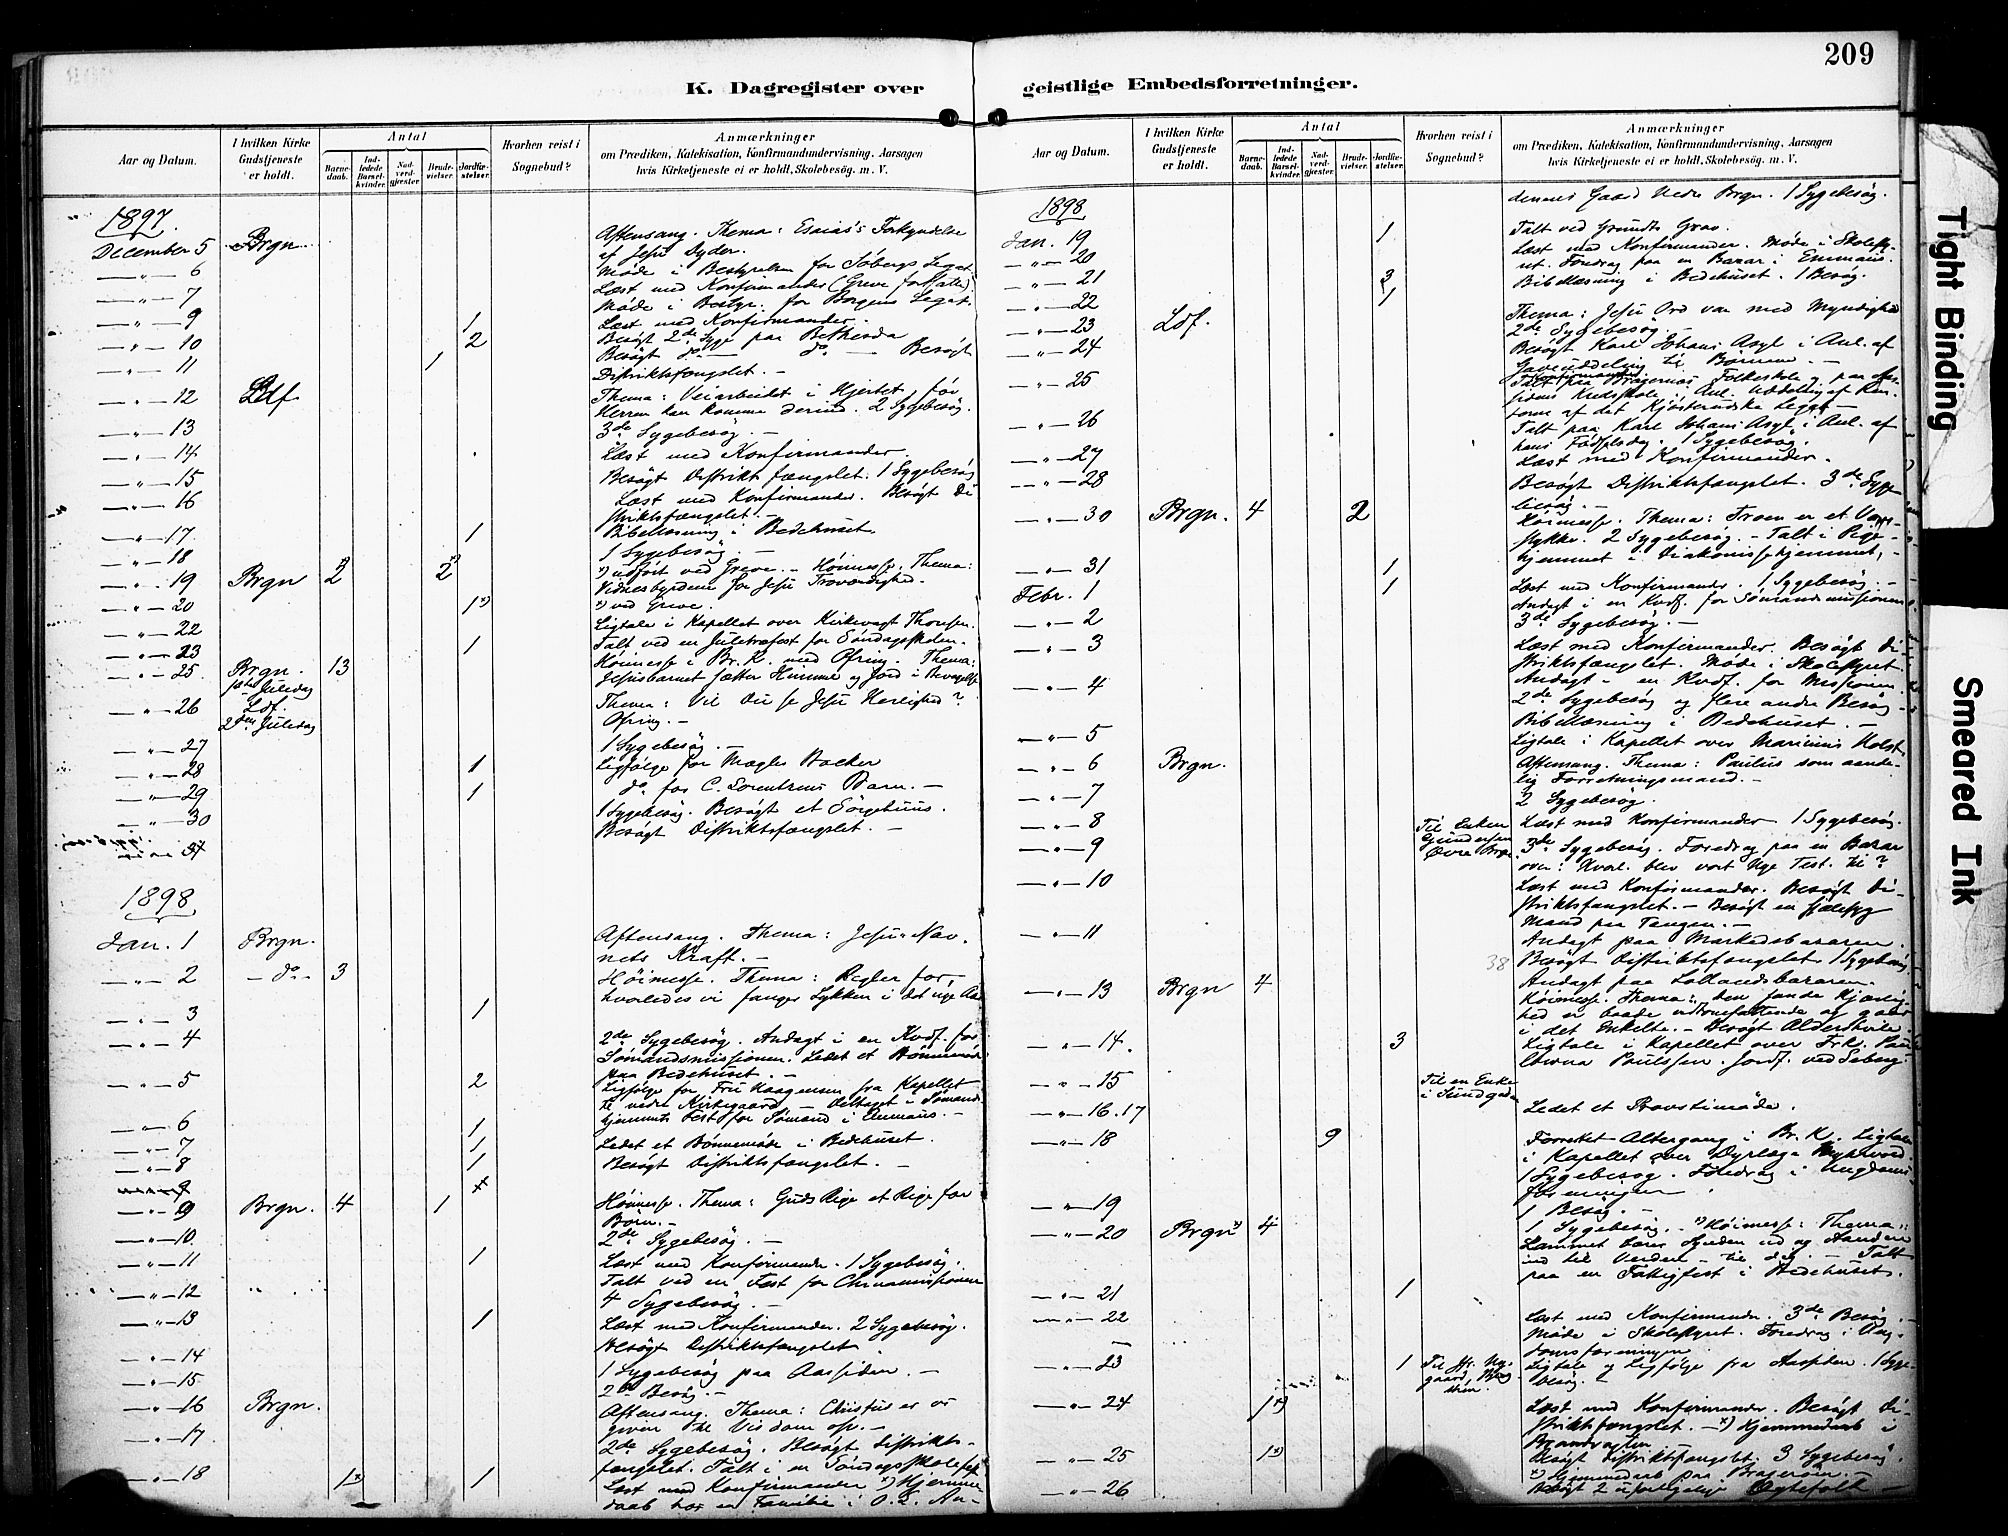 209
K. Dagregister over geistlige Embedsforretninger.
Aar og Datum.
I hvilken Kirke Gudstjeneste er holdt.
Antal
Barnedaab.
Indledede Barselkvinder.
Nadverdgjester
Brudevielser.
Jordfæstelser.
Hvorhen reist i Sognebud?
Anmærkninger
om Prædiken, Katekisation, Konfirmandundervisning, Aarsagen
hvis Kirketjeneste ei er holdt, Skolebesøg. m. V.
1897.
December 5 Brgn Aftensang. Thema: Esaias's Forkyndelse
af Jesu Lyder.
— " — 6 Møde i Bestyrelsen for Søbergs Legat
— " — 7 Læst med Konfirmander (Greve forfaldt)
Møde i Bestyr. for Borgens Legat.
— " — 9 1 Læst med Konfirmander.
— " — 10 2 Besøgt 2de Syge paa Bethesda
— " — 11 1 Besøgt do — do — Besøgt
Distriktsfængslet. —
— " — 12 Ldf Thema: Veiarbeidet i Hjertet, før
Herren kan komme derind. 2 Sygebesøg.
— " — 13 3de Sygebesøg. —
— " — 14 Læst med Konfirmander.
— " — 15 Besøgt Distriktfængslet. 1 Sygebesøg
— " — 16 Læst med Konfirmander. Besøgt Di-
striktsfængslet. —
— " — 17 1 Bibellæsning i Bedehuset.
— " — 18 1 Sygebesøg. —
— " — 19 Brgn 2 2 x) udført ved Greve. — Høimesse. Thema:
Vidnesbyrdene for Jesu Troværdighed.
— " — 20 1 x) x) ved Greve.
— " — 22 Ligtale i Kapellet over Kirkevægt Thoresen.
— " — 23 1 Talt ved en Juletræfest for Søndagsskolen.
— " — 25 Brgn. 13 Høimesse i Br. K. med Ofring. Thema:
1ste Juledag Jesusbarnet sætter Himmel og Jord i Bevægelse
— " — 26 Ldf. Thema: Vil Du se Jesu Herlighed?
2den Juledag Ofring. —
— " — 27 1 Sygebesøg. —
— " — 28 1 Ligfølge for Mægler Backer
— " — 29 1 do for C. Lorentzens Barn. —
— " — 30 1 Sygebesøg. Besøgt et Sørgehuus.
Besøgt Distriktsfængslet. —
1898
Jan. 1 Brgn. Aftensang. Thema: Jesu-Nav-
nets Kraft. —
— " — 2 — do — 3 Høimesse. Thema: Regler for,
hvorledes vi fanger Lykken i det nye Aar
— " — 3 1
— " — 4 2de Sygebesøg. Andagt i en Kvdf. for
Sømandsmissionen. Ledet et Bønnemøde
paa Bedehuset. —
— " — 5 2 Ligfølge for Fru Haagensen fra Kapellet
til nedre Kirkegaard — Deltaget i Sømands-
hjemmets Fest for Sømænd i Emmaus. —
— " — 6 1
— " — 7 1 Ledet et Bønnemøde i Bedehuset.
— " — 8 1 Besøgt Distriktsfængslet. —
— " — 9 Brgn. 4 1 Høimesse. Thema: Guds Rige et Rige for
Børn. —
— " — 10 2de Sygebesøg. —
— " — 11 1 Læst med Konfirmander. 1 Sygebesøg.
Talt ved en Fest for Chinamissionen
— " — 12 4 Sygebesøg. —
— " — 13 1 Læst med Konfirmander. 2 Sygebesøg.
Besøgt Distriktsfængslet.
— " — 14 1 Sygebesøg paa Aassiden. —
— " — 15 2de Besøg. —
— " — 16 Brgn. Aftensang. Thema: Christus er os
given til Visdom osv. —
— " — 17 2de Sygebesøg. Besøgt Distrikts-
fængslet. Talt i en Søndagsskolefest
— " — 18 1x) 1 Læst med Konfirmander x) Hjemme-
daab hos en Familie i
1898 dennes Gaard Nedre Brgn. 1 Sygebesøg.
Jan. 19 1 Talt ved Grundts Grav.
— " — 20 Læst med Konfirmander. Møde i Skolesty-
ret. Foredrag paa en Bazar i Emmaus.
— " — 21 3 Bibellæsning i Bedehuset. 1 Besøg.
— " — 22 1
— " — 23 Ldf. Thema: Jesu Ord var med Myndighed
2de Sygebesøg —
— " — 24 Besøgt Karl Johans Asyl i Anl. af
Gaveuddeling til Børnene. —
— " — 25 Talt paa Bragernes Folkeskole og paa Aas-
sidens Kredsskole i Anl. Uddeling af Ren-
terne af det Kjøsterudske Legat —
— " — 26 Talt paa Karl Johans Asyl i Anl. af
hans Fødselsdag. 1 Sygebesøg.
— " — 27 Læst med Konfirmander.
— " — 28 Besøgt Distriktsfængslet. 3de Syge-
besøg. —
— " — 30 Brgn. 4 2 Høimesse. Thema: Troen er et Vove-
stykke. 2 Sygebesøg. — Talt i Pige-
hjemmet i Diakonissehjemmet. —
— " — 31 1 Læst med Konfirmander. 1 Sygebesøg. —
Febr. 1 1 Andagt i en Kvdf. for Sømandsmissionen
— " — 2 3de Sygebesøg. —
— " — 3 Læst med Konfirmander. Besøgt Di-
striktsfængslet. Møde i Skolestyret
— " — 4 Andagt — en Kvdf. for Missionen.
2de Sygebesøg og flere andre Besøg
Bibellæsning i Bedehuset. —
— " — 5 Ligtale i Kapellet over Marinius Holst
— " — 6 Brgn. Aftensang. Thema: Paulus som aande-
lig Forretningsmand. —
— " — 7 2 Sygebesøg.
— " — 8 Til Enken Gundersen Øvre Brgn. Læst med Konfirmander 1 Sygebesøg.
— " — 9 3de Sygebesøg. Foredrag paa en Bazar
over: Hvorl. blev vort Nye Test. til?
— " — 10 Læst med Konfirmander. Besøgt Di-
striktsfængslet. — Besøgt en sjælesyg
Mand paa Tangen. —
— " — 11 Andagt paa Markedsbazaren.
38 Besøgt Distriktsfængslet 1 Sygebesøg
Andagt paa Lollandsbazaren.
— " — 13 Brgn 4 Høimesse. Thema: Den sande Kjærlig-
hed er baade verdensomfattende og gaar
i det Enkelte. — Besøgt Aldershvile.
— " — 14. 3 Ligtale i Kapellet over Frk. Pau-
Paulssen. Jordf. ved Seberg
— " — 15 Til en Enke i Sundgaden
— " — 16. 17 Ledet et Provstimøde.
— " — 18 9 Forrettet Altergang i Br. K. Ligtale
i Kapellet over Dyrlæge
1 Sygebesøg. Foredrag i Ungdoms-
foreningen.
— " — 19 1 Besøg. —
— " — 20 Brgn x) 4 1 Sygebesøg. — x) Høimesse: Thema:
Lammet bærer Synden ud og Aanden
ind til Verden — til dig. — Talt
paa en Fattigfest i Bedehuset.
— " — 21 1
— " — 22 Læst med Konfirmander. 3de Besøg. —
Møde i Skolestyret. Foredrag i Ung-
domsforeningen
— " — 23 1 Ligtale og Ligfølge fra Aassiden. 1 Syge-
besøg. —
— " — 24 1x) Læst med Konfirmander. Besøgt Di-
striktsfængslet. — x) Hjemmedaab i
Brandvagten
— " — 25 1x) Besøgt Distriktsfængslet. 3 Sygebesøg
x) Hjemmedaab paa Bragerøen. —
— " — 26 Besøgt 2 uforligelige Ægtefolk —
Tight Binding
Smeared Ink